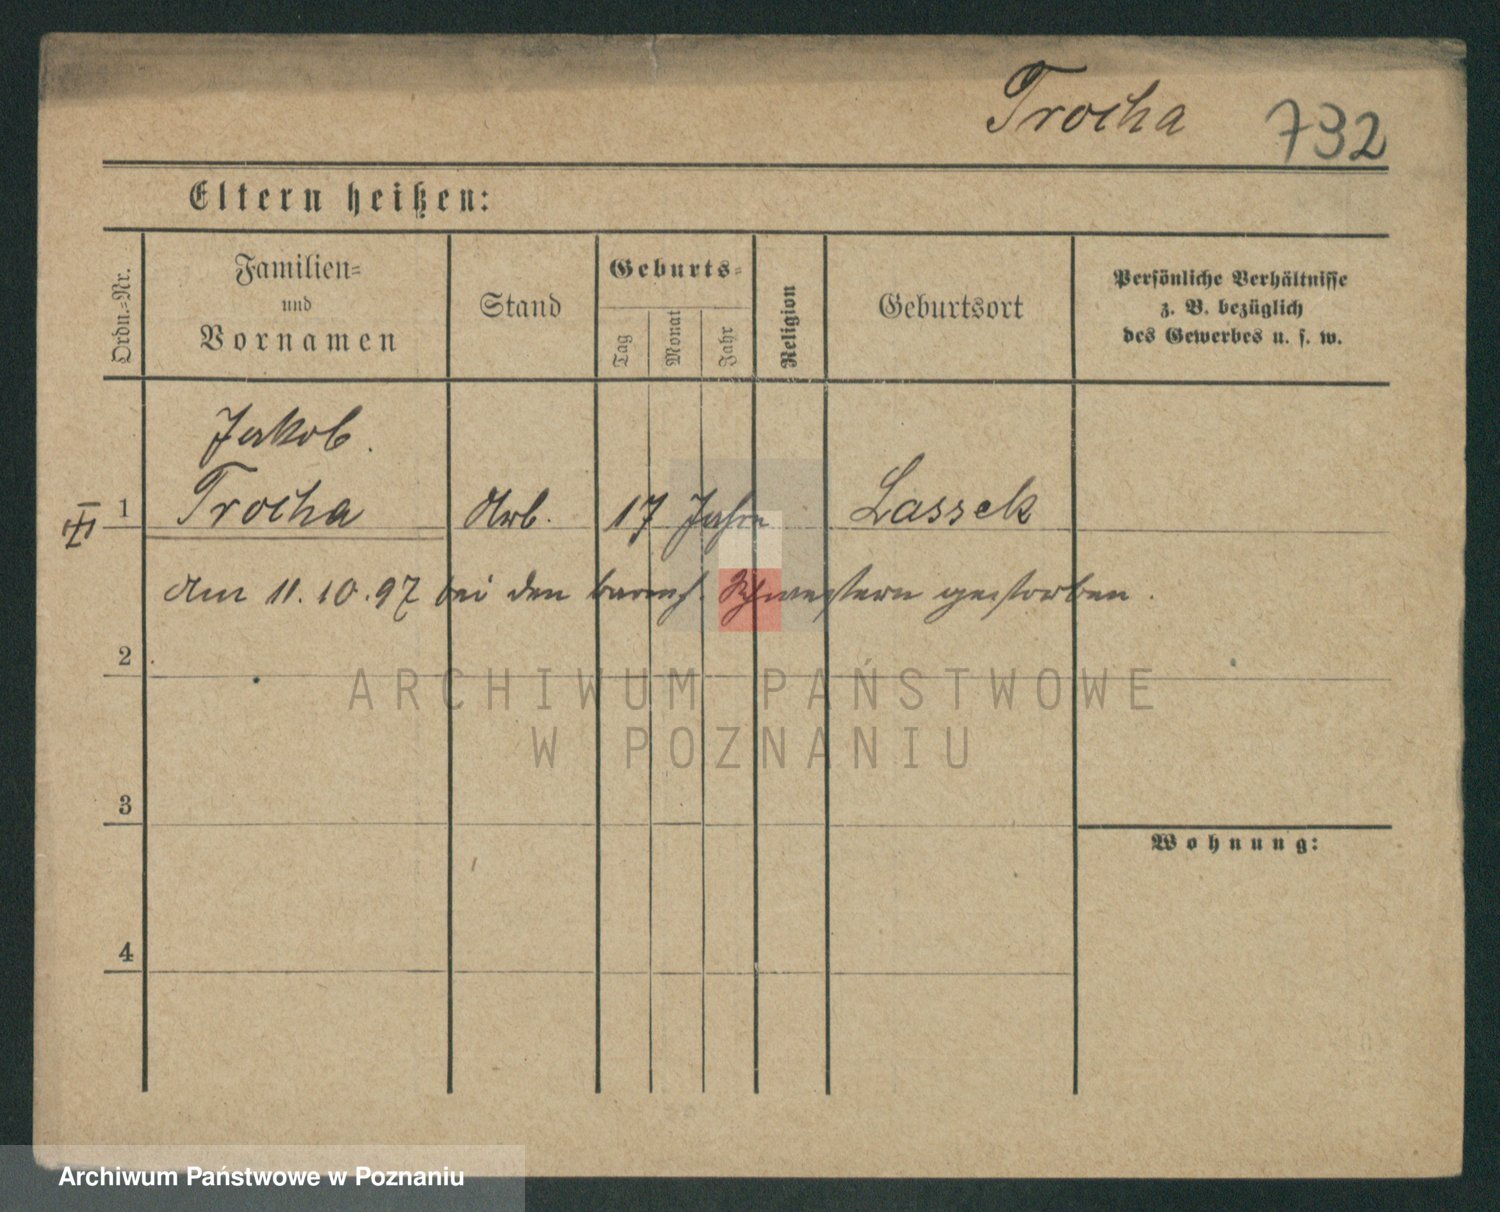 Trocha 732
Eltern heißen:
Ordn.-Nr.
Familien-
und
Vornamen
Stand
Geburts-
Tag
Monat
Jahr
Religion
Geburtsort
Persönliche Verhältnisse
z. B. bezüglich
des Gewerbes u. s. w.
Jakob.
1 Trocha Arb. 17 Jahre Lassek
Am 11.10.97 bei den barmh. Schwestern gestorben.
2
ARCHIWUM PAŃSTWOWE
W POZNANIU
3
Wohnung:
4
Archiwum Państwowe w Poznaniu